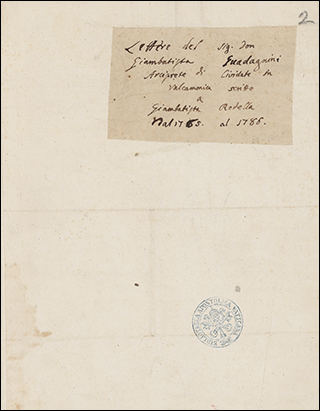 2
Lettere del Sig. Don
Giambatista Guadagnini
Arciprete di Cividate in
Valcamonica scritte
a
Giambatista Rodella
Dal 1765. al 1786.
BIBLIOTECA APOSTOLICA VATICANA